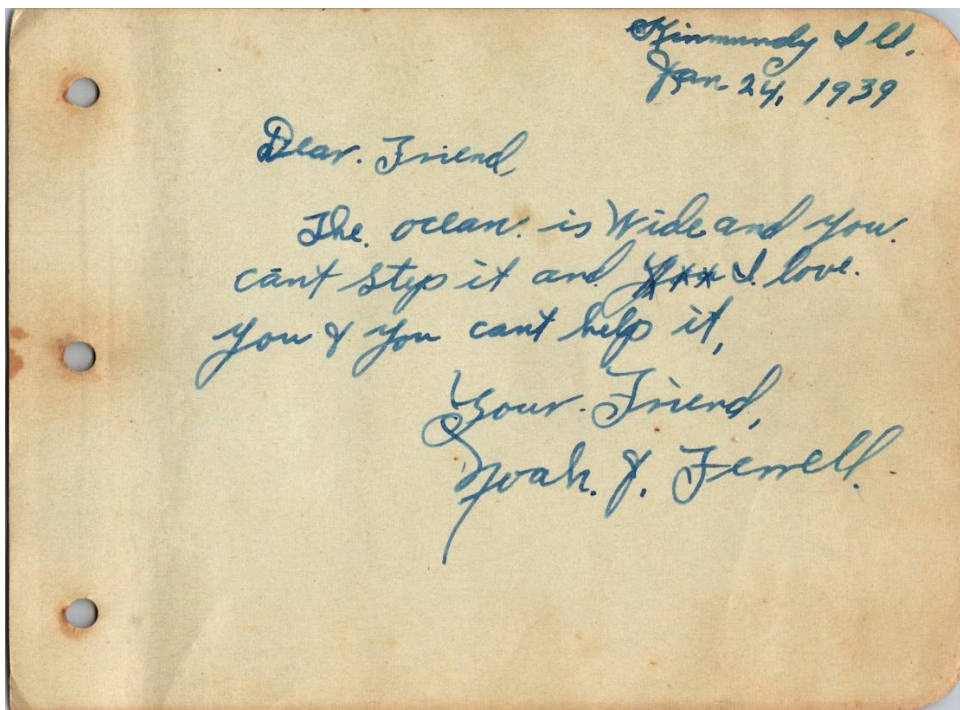 Kinmundy Ill.
Jan. 24, 1939
Dear. Friend,
The. ocean. is Wide and you.
cant step it and I. love.
you & you cant help it,
Your. Friend,
Noah. J. Ferrell.